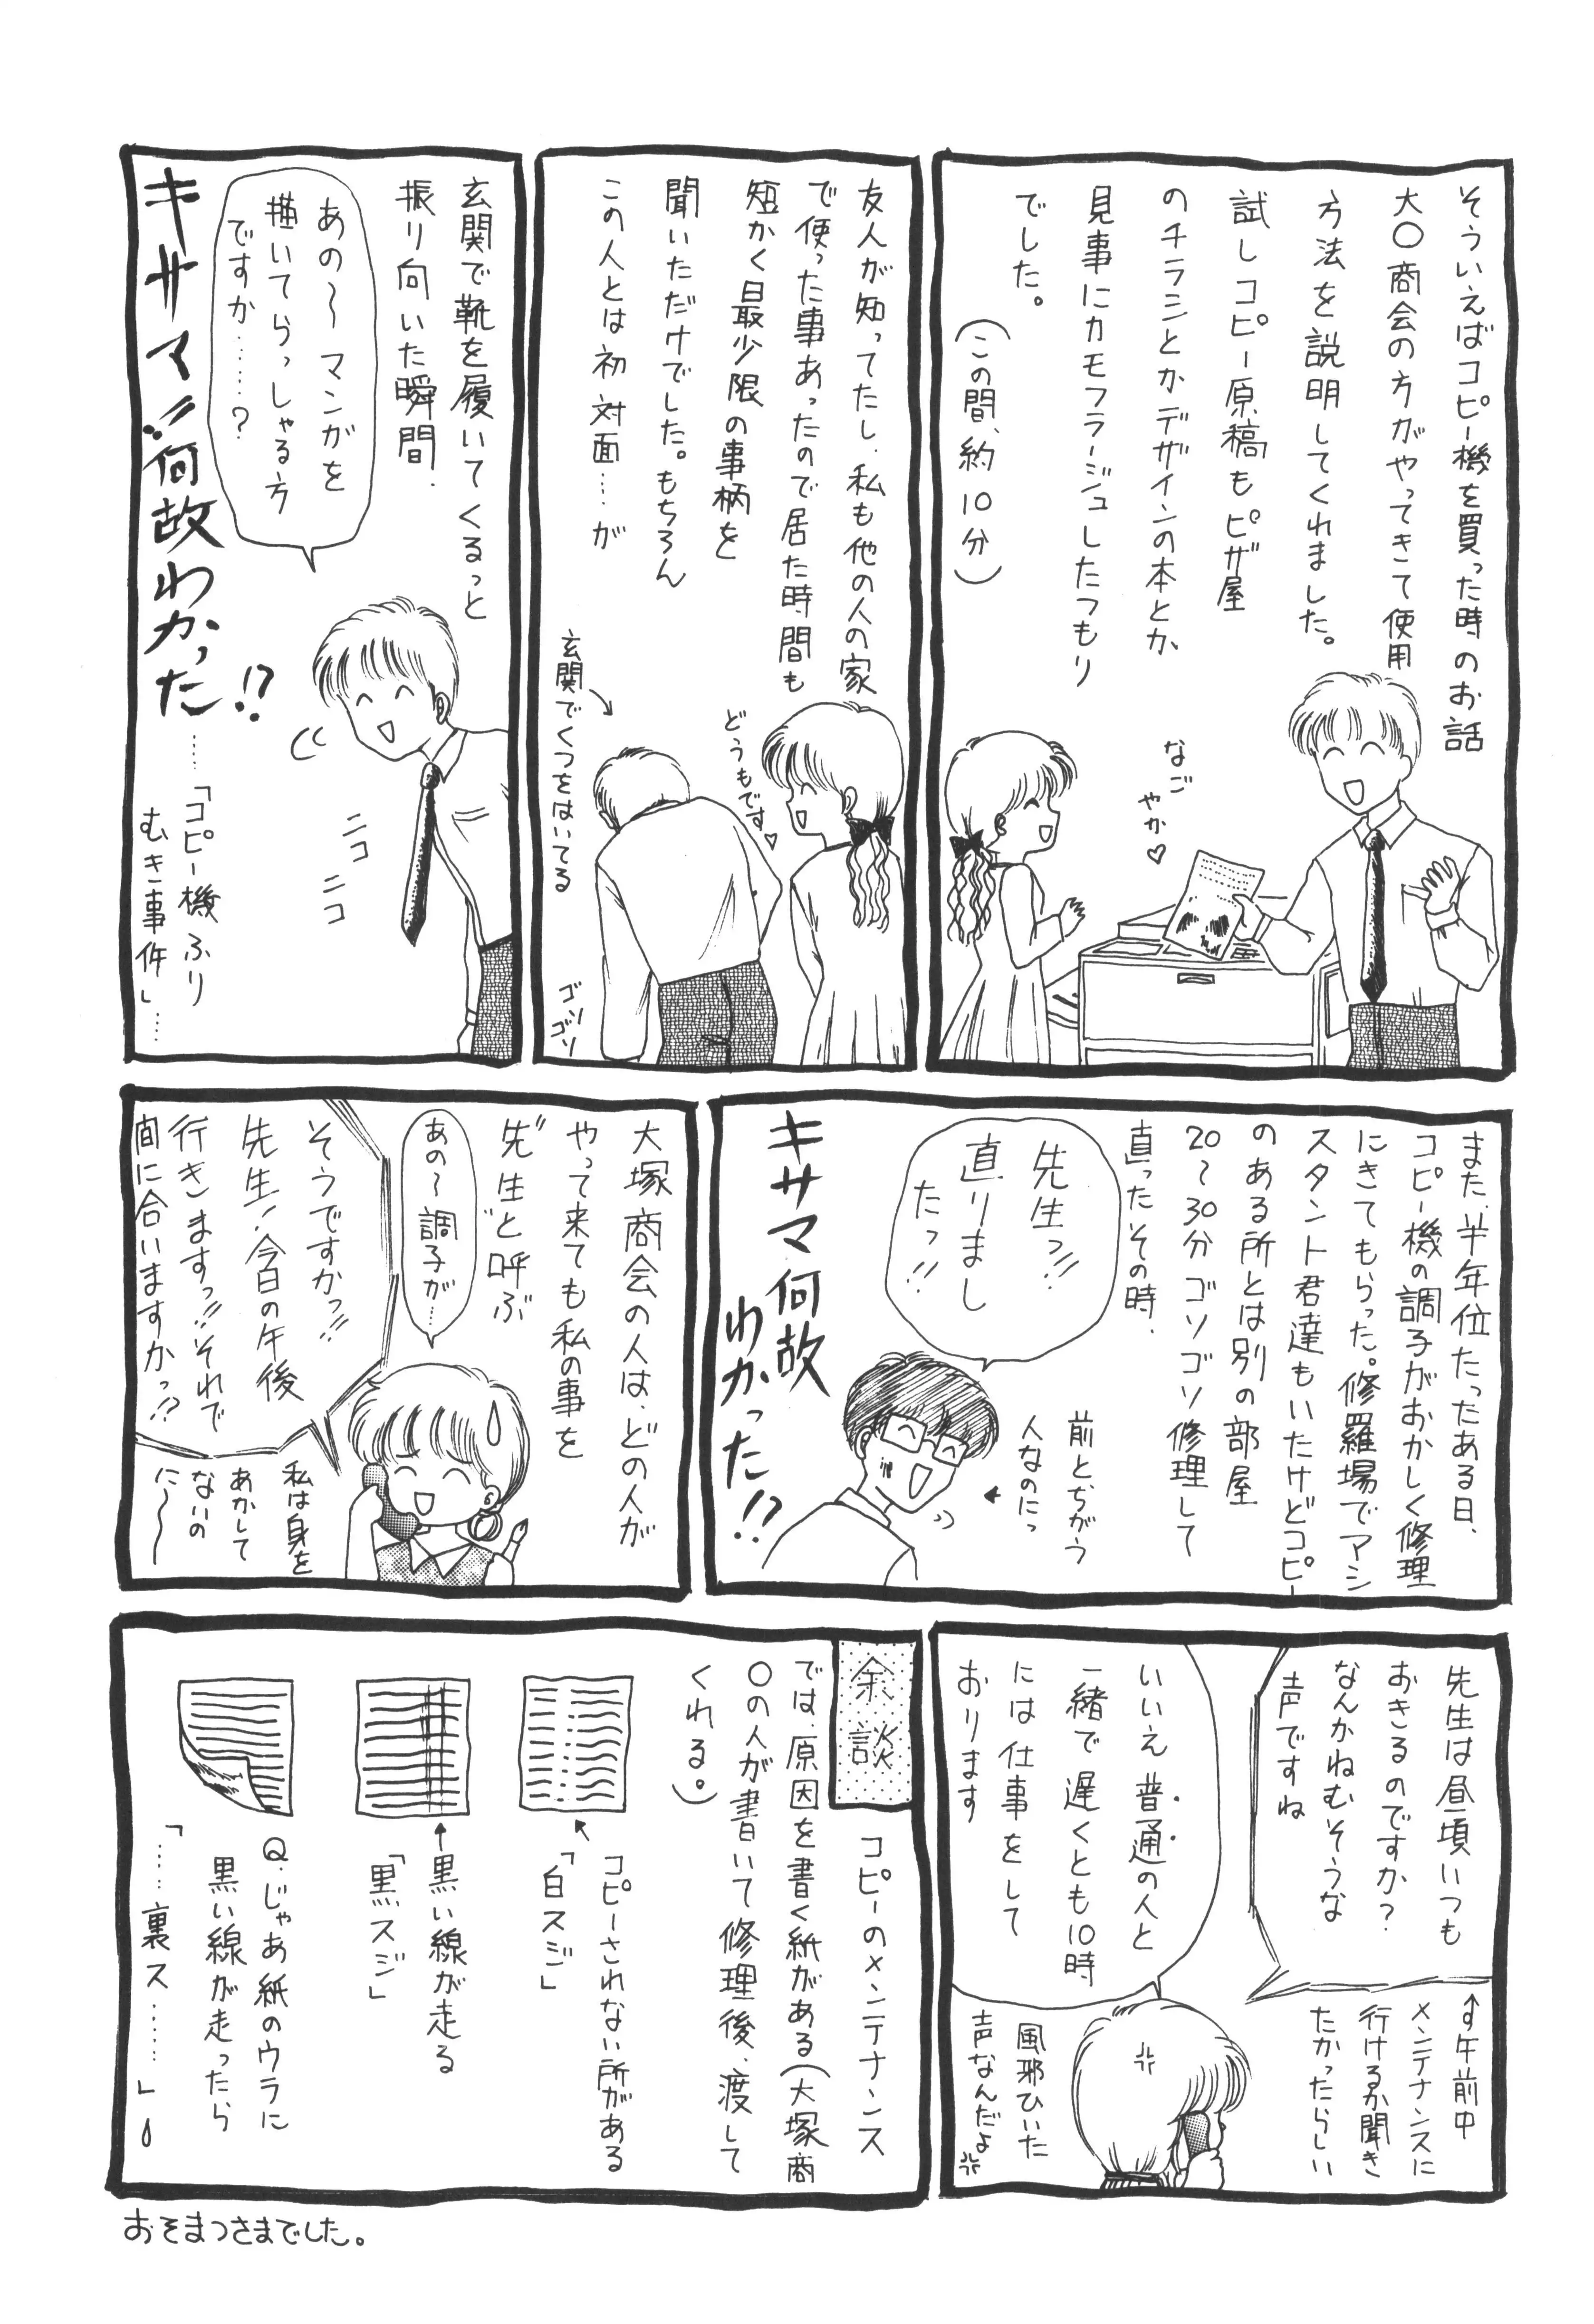 そういえばコピー機を買った時のお話
大〇商会の方がやってきて使用
方法を説明してくれました。
試しコピー原稿もピザ屋
のチラシとかデザインの本とか、
見事にカモフラージュしたつもり
でした。
(この間、約10分)
なご
やか♡
友人が知ってたし、私も他の人の家
で使った事あったので居た時間も
短かく最少限の事柄を
聞いただけでした。もちろん
この人とは初対面…が
どうもです♡
玄関でくつをはいてる
ゴソ
ゴソ
玄関で靴を履いてくるっと
振り向いた瞬間、
あの〜マンガを
描いてらっしゃる方
ですか……?
キサマ!!何故わかった!?
……「コピー機ふり
むき事件」…
ニコ
ニコ
また、半年位たったある日、
コピー機の調子がおかしく修理
にきてもらった。修羅場でアシ
スタント君達もいたけどコピー
のある所とは別の部屋
20〜30分ゴソゴソ修理して
直ったその時、
先生っ!!
直りまし
たっ!!
前とちがう
人なのにっ
キサマ何故
わかった!?
大塚商会の人は、どの人が
やって来ても私の事を
"先生"と呼ぶ
あの〜調子が…
そうですかっ!!
先生!今日の午後
行きますっ!!それで
間に合いますかっ!?
私は身を
あかして
ないの
に〜〜
先生は昼頃いつも
おきるのですか?
なんかねむそうな
声ですね
↑す午前中
メンテナンスに
行けるか聞き
たかったらしい
いいえ普通の人と
一緒で遅くとも10時
には仕事をして
おります
風邪ひいた
声なんだよ
余談
コピーのメンテナンス
では、原因を書く紙がある(大塚商
〇の人が書いて修理後、渡して
くれる。)
コピーされない所がある
「白スジ」
黒い線が走る
「黒スジ」
Q.じゃあ紙のウラに
黒い線が走ったら
「……裏ス……」
おそまつさまでした。